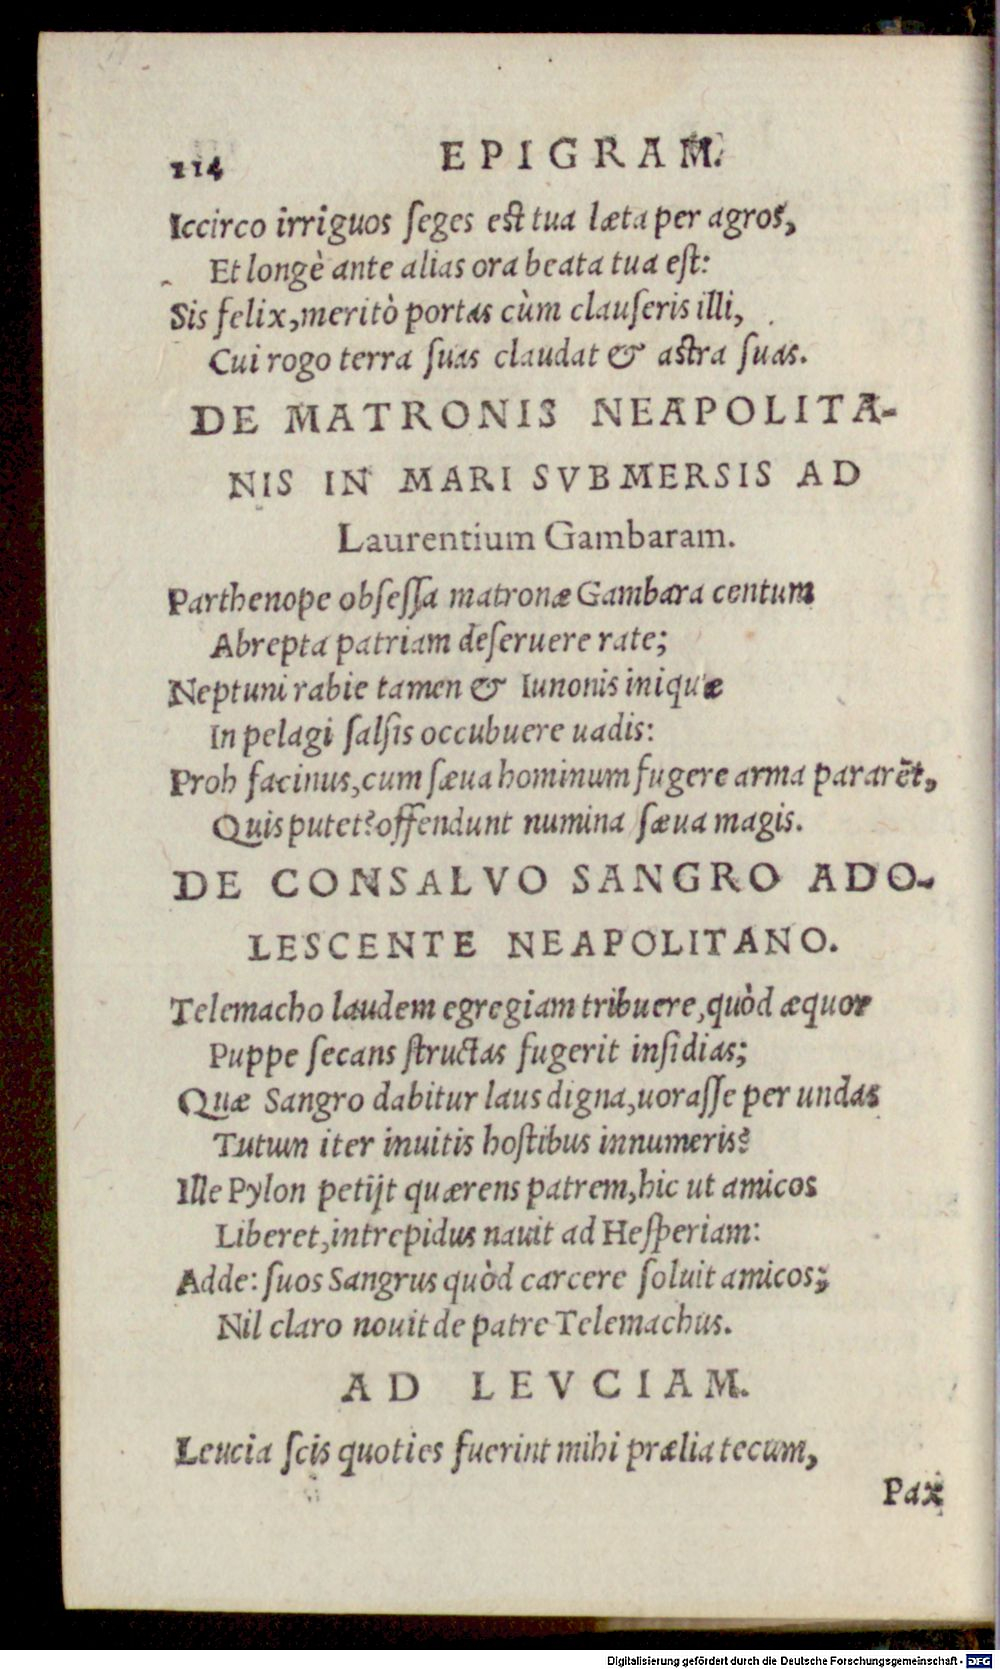 114 EPIGRAM.
Iccirco irriguos ſeges eſt tua læta per agros,
Et longè ante alias ora beata tua eſt:
Sis felix, meritò portas cùm clauſeris illi,
Cui rogo terra ſuas claudat & aſtra ſuas.
DE MATRONIS NEAPOLITA-
NIS IN MARI SVBMERSIS AD
Laurentium Gambaram.
Parthenope obſeſſa matronæ Gambara centum
Abrepta patriam deſeruere rate;
Neptuni rabie tamen & Iunonis iniquæ
In pelagi ſalſis occubuere uadis:
Proh facinus, cum ſæua hominum fugere arma pararēt,
Quis putet? offendunt numina ſæua magis.
DE CONSALVO SANGRO ADO-
LESCENTE NEAPOLITANO.
Telemacho laudem egregiam tribuere, quòd æquor
Puppe ſecans ſtructas fugerit inſidias;
Quæ Sangro dabitur laus digna, uoraſſe per undas
Tutum iter inuitis hoſtibus innumeris?
Ille Pylon petijt quærens patrem, hic ut amicos
Liberet, intrepidus nauit ad Heſperiam:
Adde: ſuos Sangrus quòd carcere ſoluit amicos;
Nil claro nouit de patre Telemachus.
AD LEVCIAM.
Leucia ſcis quoties fuerint mihi prælia tecum,
Pax
Digitalisierung gefördert durch die Deutsche Forschungsgemeinschaft - DFG